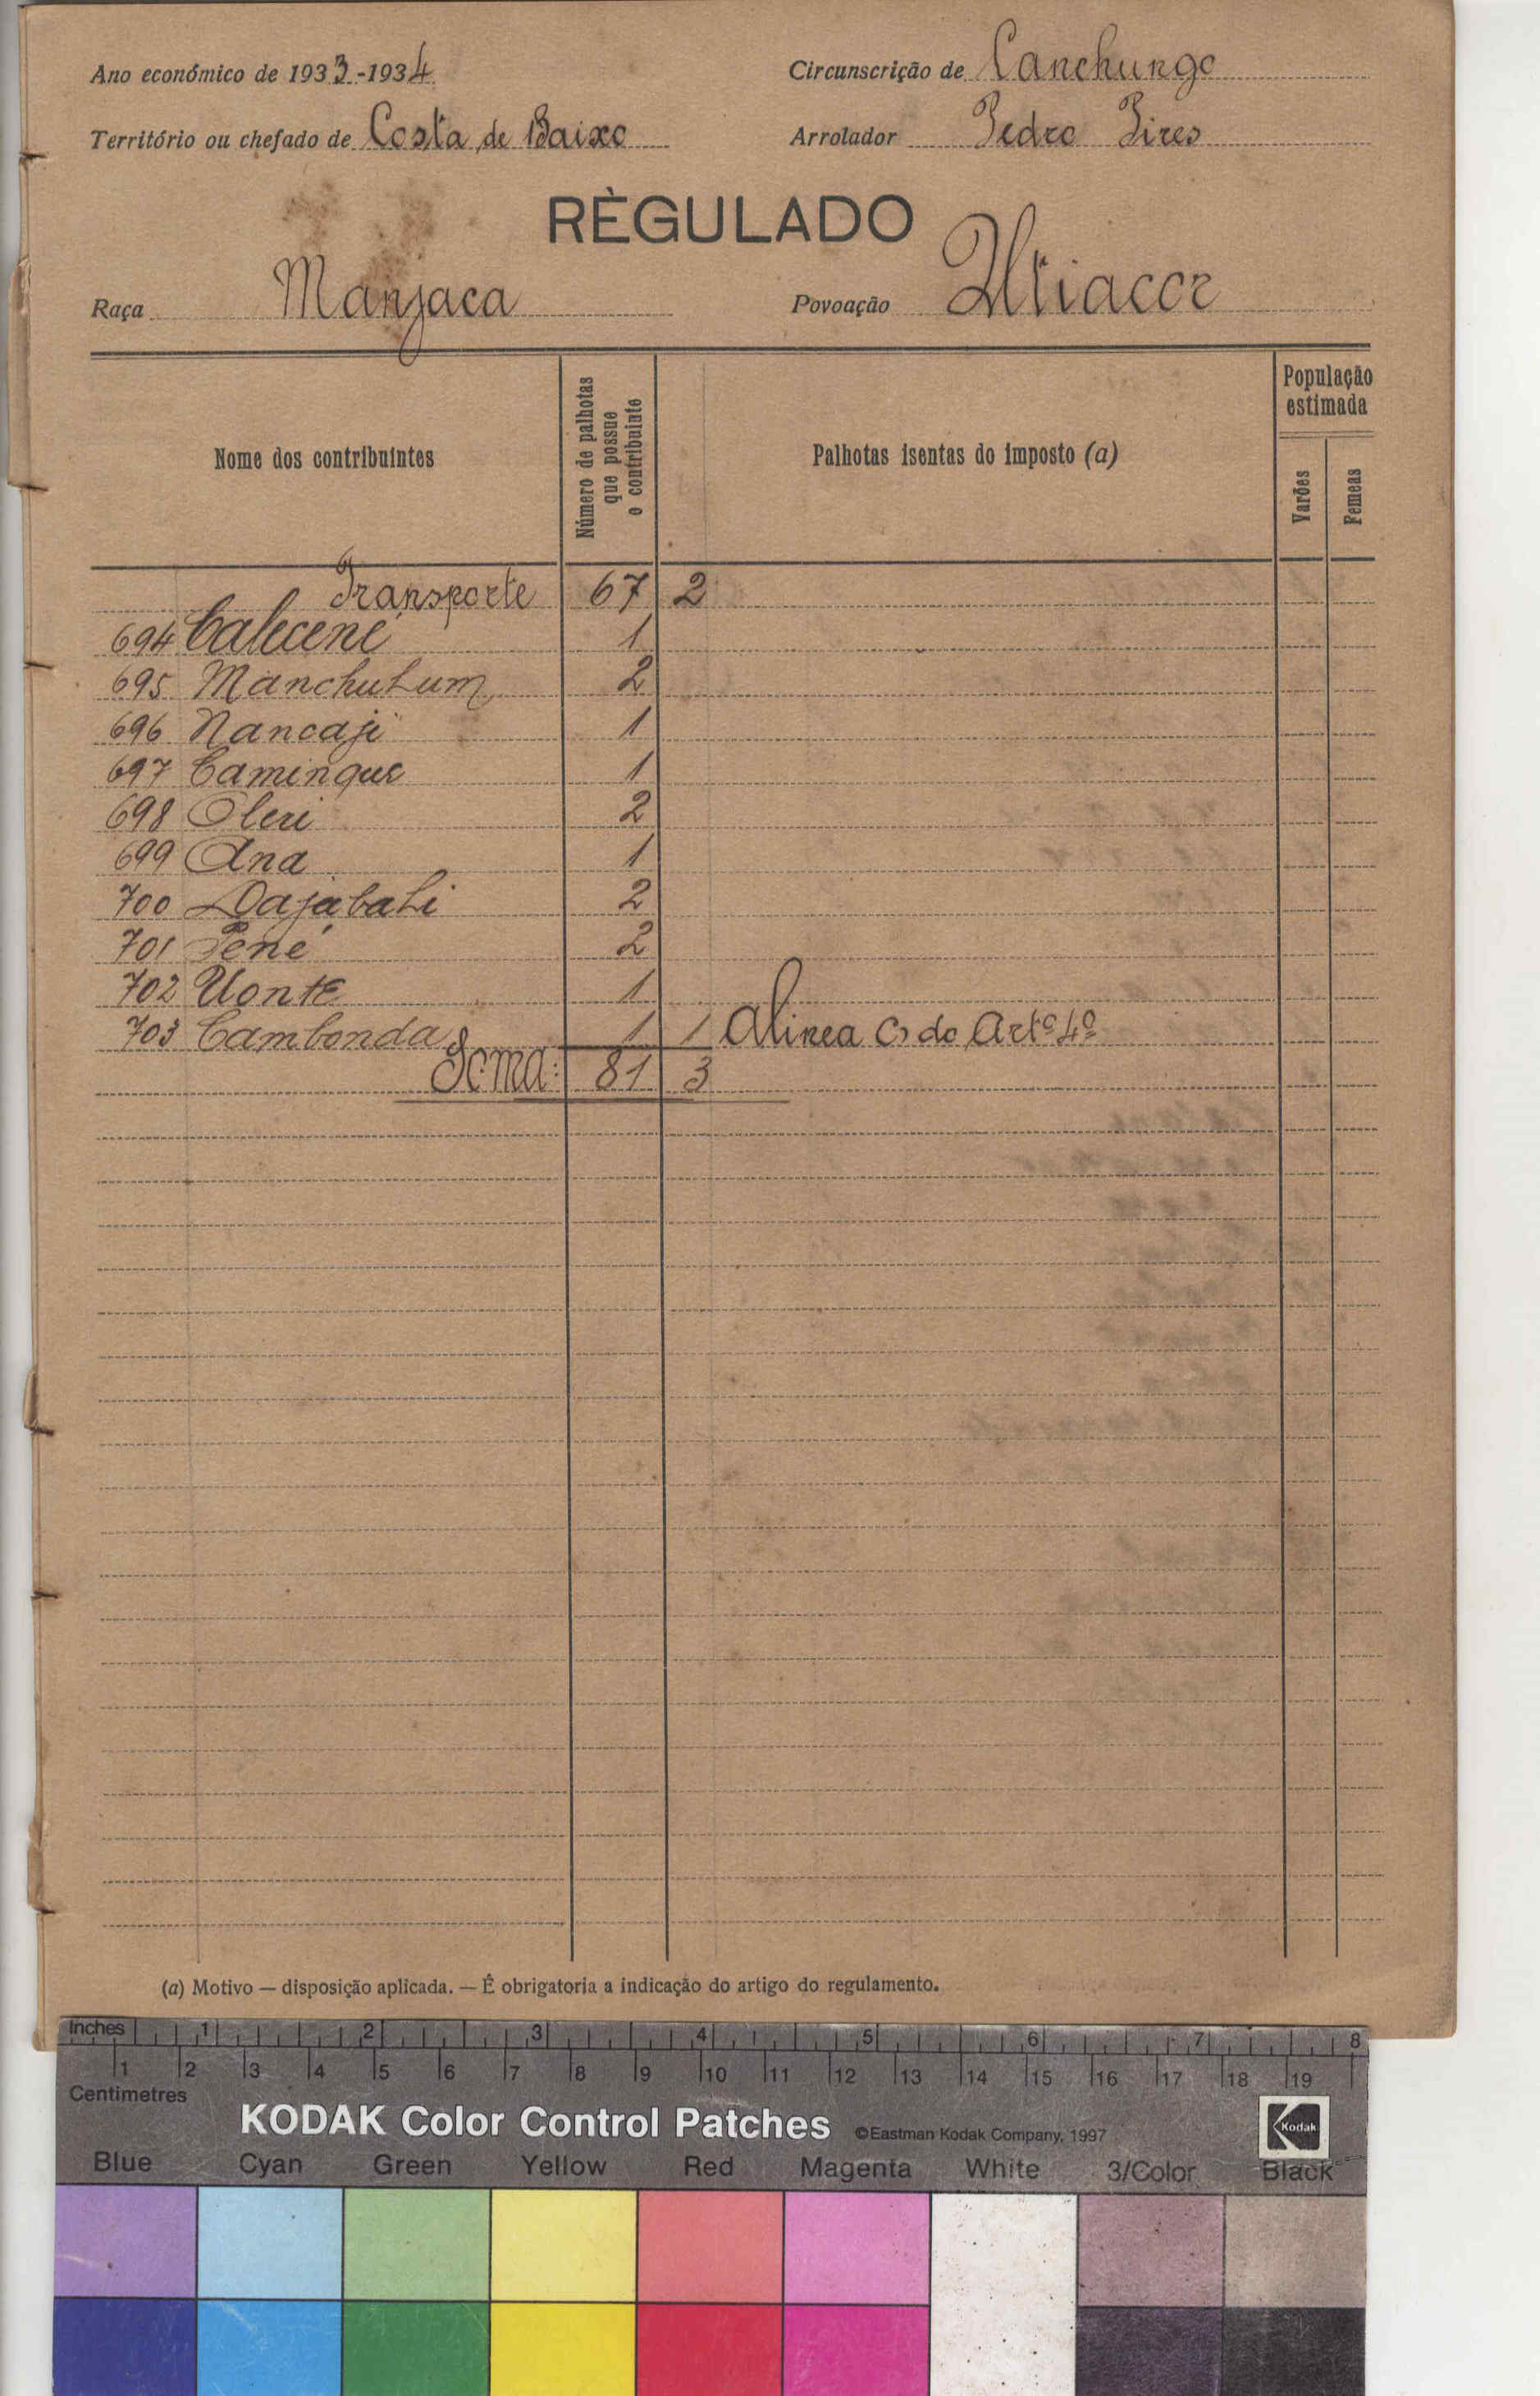 Ano económico de 1933-1934 Circunscrição de Canchungo
Território ou chefado de Costa de Baixo Arrolador Pedro Pires
RÈGULADO
Raça Manjaca Povoação Utiacor
Nome dos contribuintes Número de palhotas que possue o contribuinte Palhotas isentas do imposto (a) População estimada Varões Femeas
Transporte 67 2
694 Calecené 1
695 Manchutum 2
696 Nancaji 1
697 Caminque 1
698 Oleri 2
699 Ana 1
700 Dajabati 2
701 Pené 2
702 Uonte 1
703 Cambonda 1 1 Alinea C) do Artº 4º
Soma: 81 3
(a) Motivo — disposição aplicada. — É obrigatoria a indicação do artigo do regulamento.
Inches 1 2 3 4 5 6 7 8
1 2 3 4 5 6 7 8 9 10 11 12 13 14 15 16 17 18 19
Centimetres
KODAK Color Control Patches ©Eastman Kodak Company, 1997 Kodak
Blue Cyan Green Yellow Red Magenta White 3/Color Black